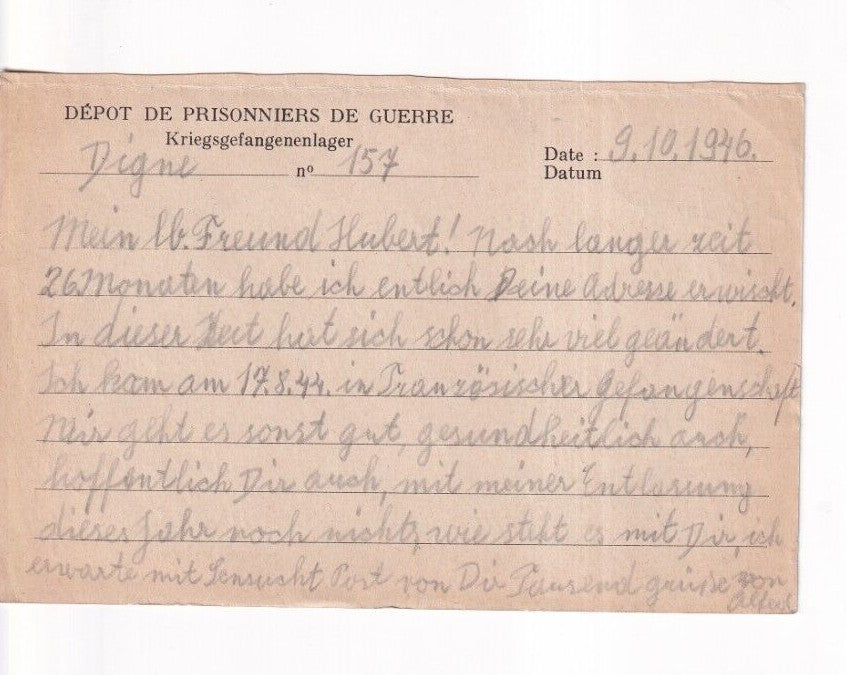 DÉPOT DE PRISONNIERS DE GUERRE
Kriegsgefangenenlager
Digne nº 157
Date : 9.10.1946.
Datum
Mein lb. Freund Hubert! Nach langer zeit
26 Monaten habe ich entlich Deine Adresse erwischt.
In dieser Zeit hat sich schon sehr viel geändert.
Ich kam am 17.8.44. in Französischer Gefangenschaft
Mir geht es sonst gut, gesundheitlich auch,
hoffentlich Dir auch, mit meiner Entlassung
dieses Jahr noch nichts, wie steht es mit Dir, ich
erwarte mit Sensucht Post von Dir Tausend grüße von
Alfred